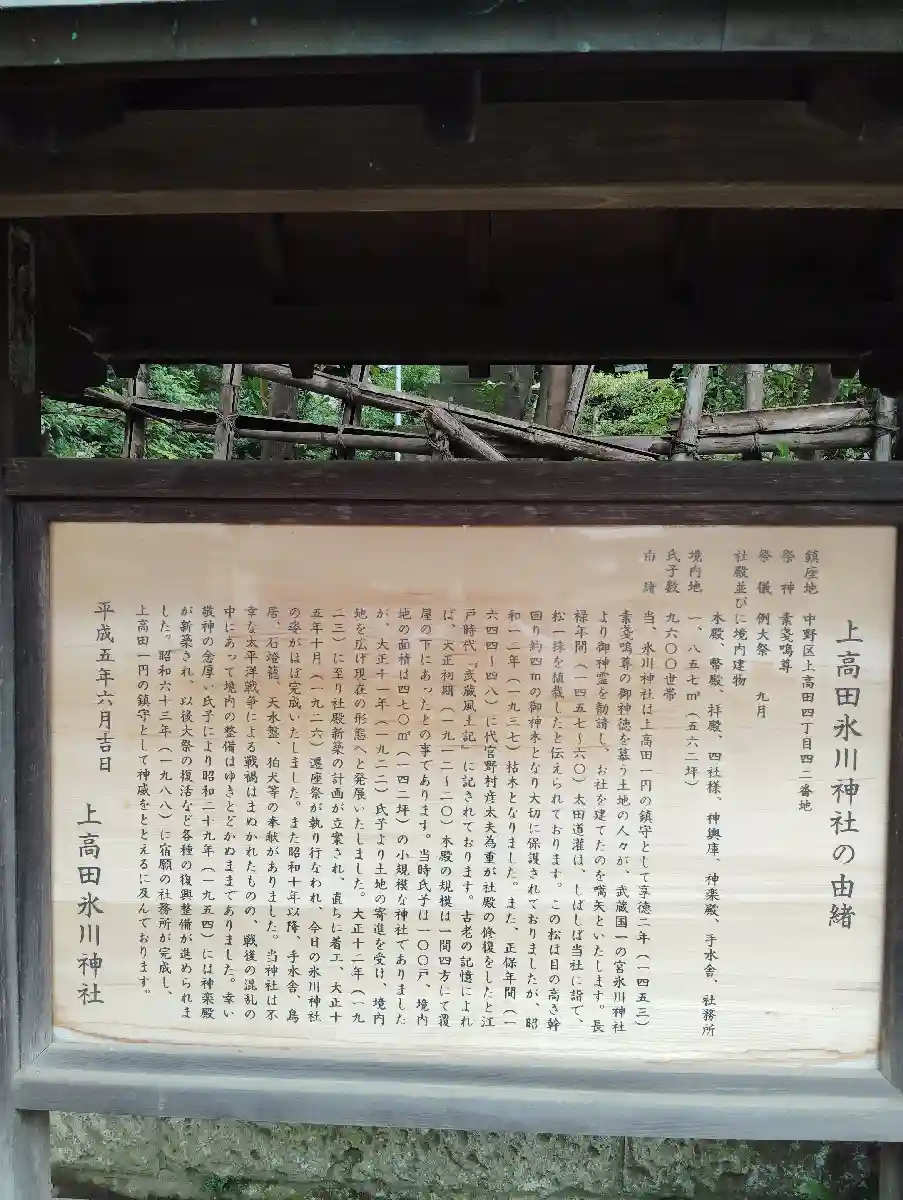 上高田氷川神社の由緒
鎮座地　中野区上高田四丁目四二番地
祭　神　素戔嗚尊
祭　儀　例大祭　九月
社殿並びに境内建物
本殿、幣殿、拝殿、四社様、神輿庫、神楽殿、手水舎、社務所
境内地　一、八五七㎡（五六二坪）
氏子数　九六〇〇世帯
由　緒　当、氷川神社は上高田一円の鎮守として享徳二年（一四五三）
素戔嗚尊の御神徳を慕う土地の人々が、武蔵国一の宮氷川神社
より御神霊を勧請し、お社を建てたのを嚆矢といたします。長
禄年間（一四五七〜六〇）太田道灌は、しばしば当社に詣で、
松一株を植栽したと伝えられております。この松は目の高さ幹
回り約四ｍの御神木となり大切に保護されておりましたが、昭
和一二年（一九三七）枯木となりました。また、正保年間（一
六四四〜四八）に代官野村彦太夫為重が社殿の修復をしたと江
戸時代「武蔵風土記」に記されております。古老の記憶によれ
ば、大正初期（一九一二〜二〇）本殿の規模は一間四方にて覆
屋の下にあったとの事であります。当時氏子は一〇〇戸、境内
地の面積は四七〇㎡（一四二坪）の小規模な神社でありました
が、大正十一年（一九二二）氏子より土地の寄進を受け、境内
地を広げ現在の形態へと発展いたしました。大正十二年（一九
二三）に至り社殿新築の計画が立案され、直ちに着工、大正十
五年十月（一九二六）遷座祭が執り行なわれ、今日の氷川神社
の姿がほぼ完成いたしました。また昭和十年以降、手水舎、鳥
居、石燈籠、天水盤、狛犬等の奉献がありました。当神社は不
幸な太平洋戦争による戦禍はまぬかれたものの、戦後の混乱の
中にあって境内の整備はゆきとどかぬままでありました。幸い
敬神の念厚い氏子により昭和二十九年（一九五四）には神楽殿
が新築され、以後大祭の復活など各種の復興整備が進められま
した。昭和六十三年（一九八八）に宿願の社務所が完成し、
上高田一円の鎮守として神威をととえるに及んでおります。
平成五年六月吉日　上高田氷川神社